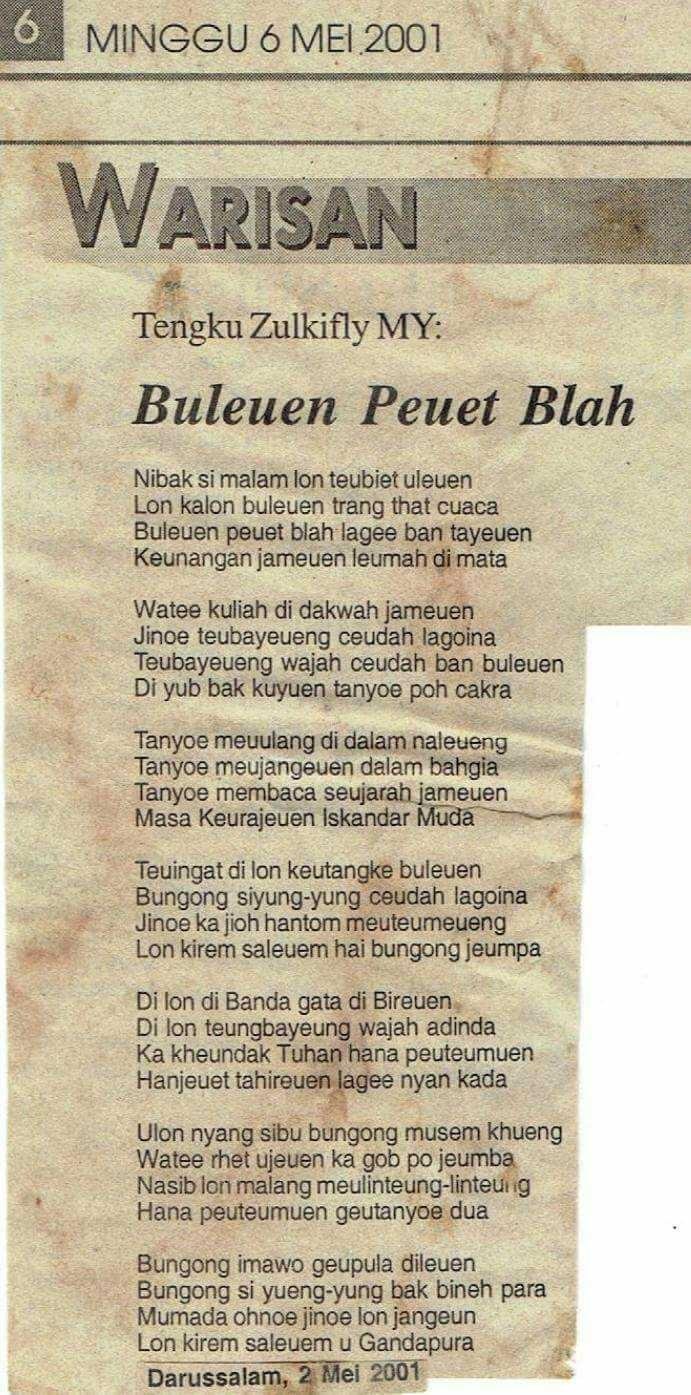 6
MINGGU 6 MEI 2001
WARISAN
Tengku Zulkifly MY:
Buleuen Peuet Blah
Nibak si malam lon teubiet uleuen
Lon kalon buleuen trang that cuaca
Buleuen peuet blah lagee ban tayeuen
Keunangan jameuen leumah di mata
Watee kuliah di dakwah jameuen
Jinoe teubayeueng ceudah lagoina
Teubayeueng wajah ceudah ban buleuen
Di yub bak kuyuen tanyoe poh cakra
Tanyoe meuulang di dalam naleueng
Tanyoe meujangeuen dalam bahgia
Tanyoe membaca seujarah jameuen
Masa Keurajeuen Iskandar Muda
Teuingat di lon keutangke buleuen
Bungong siyung-yung ceudah lagoina
Jinoe ka jioh hantom meuteumeueng
Lon kirem saleuem hai bungong jeumpa
Di lon di Banda gata di Bireuen
Di lon teungbayeung wajah adinda
Ka kheundak Tuhan hana peuteumuen
Hanjeuet tahireuen lagee nyan kada
Ulon nyang sibu bungong musem khueng
Watee rhet ujeuen ka gob po jeumba
Nasib lon malang meulinteung-linteung
Hana peuteumuen geutanyoe dua
Bungong imawo geupula dileuen
Bungong si yueng-yung bak bineh para
Mumada ohnoe jinoe lon jangeun
Lon kirem saleuem u Gandapura
Darussalam, 2 Mei 2001